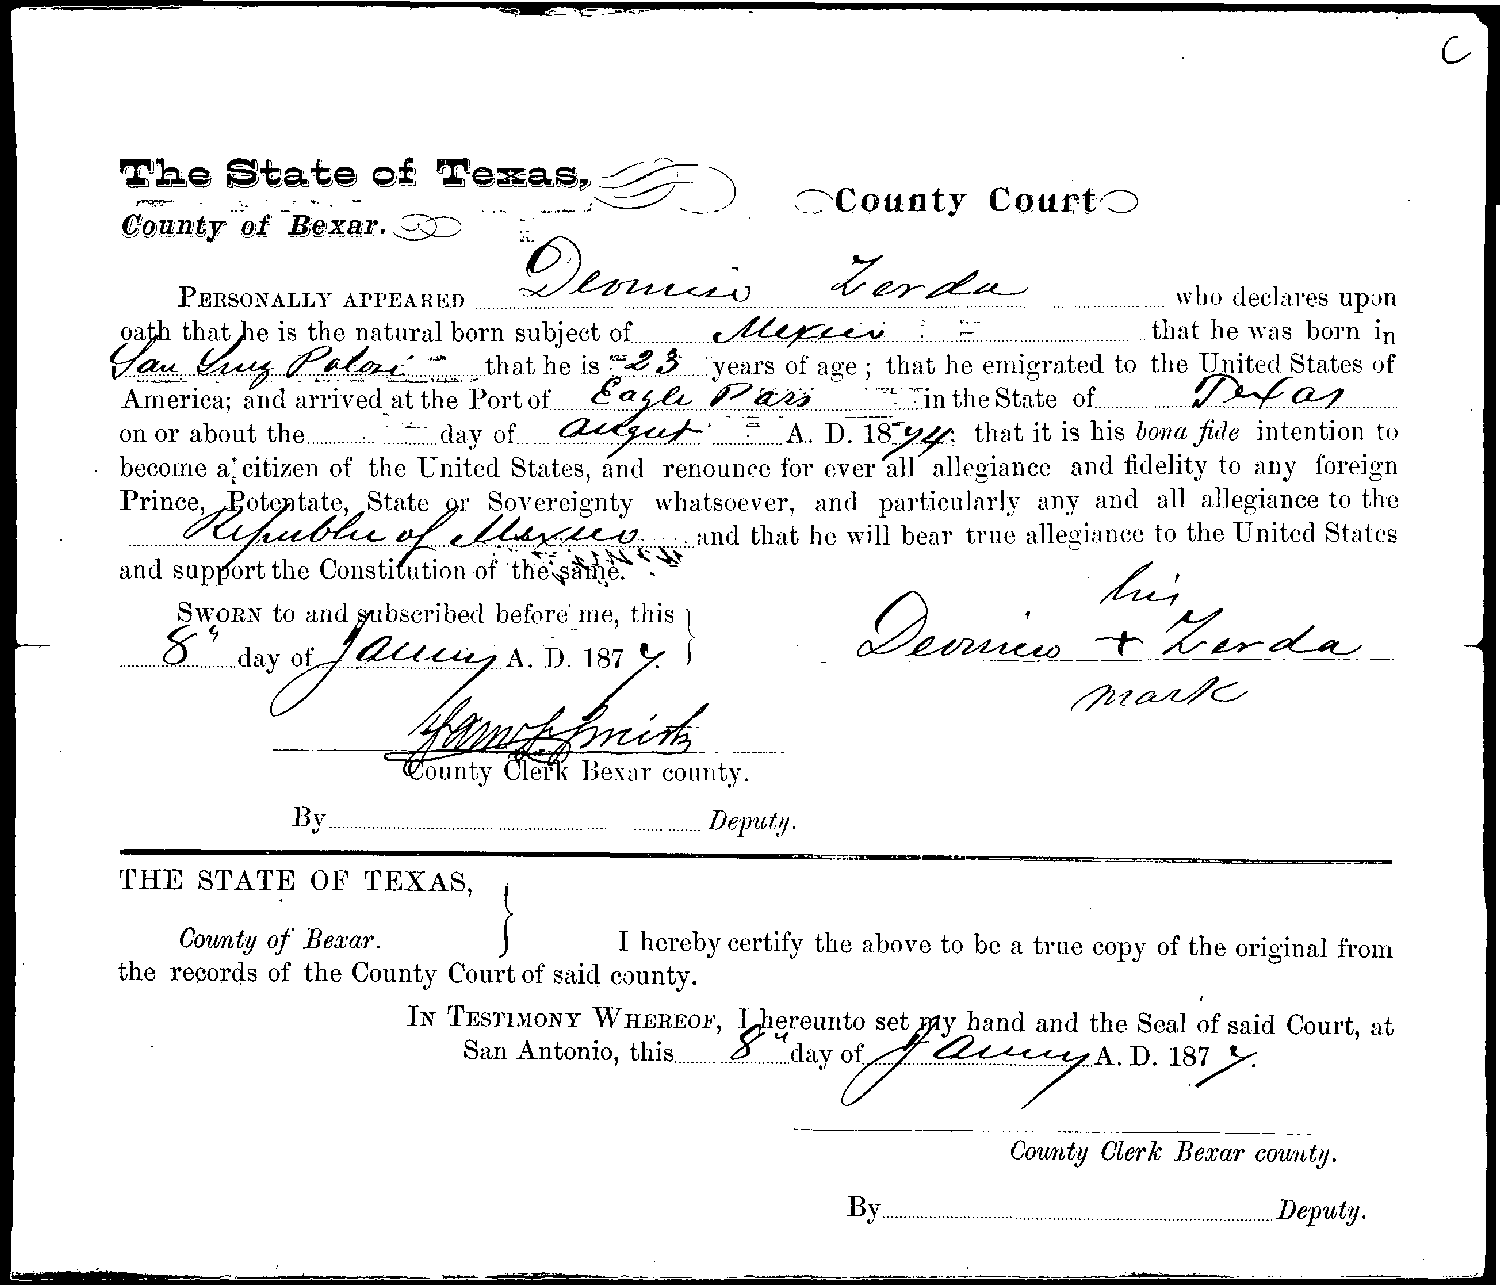 C
The State of Texas,
County Court
County of Bexar.
PERSONALLY APPEARED Deonicio Zerda who declares upon
oath that he is the natural born subject of Mexico that he was born in
San Luiz Potosi that he is 23 years of age; that he emigrated to the United States of
America; and arrived at the Port of Eagle Pass in the State of Texas
on or about the day of August A. D. 1874; that it is his bona fide intention to
become a citizen of the United States, and renounce for ever all allegiance and fidelity to any foreign
Prince, Potentate, State or Sovereignty whatsoever, and particularly any and all allegiance to the
Republic of Mexico and that he will bear true allegiance to the United States
and support the Constitution of the same.
SWORN to and subscribed before me, this
8" day of January A. D. 1877.
his
Deonicio + Zerda
mark
Sam S Smith
County Clerk Bexar county.
By Deputy.
THE STATE OF TEXAS,
County of Bexar.
I hereby certify the above to be a true copy of the original from
the records of the County Court of said county.
IN TESTIMONY WHEREOF, I hereunto set my hand and the Seal of said Court, at
San Antonio, this 8" day of January A. D. 1877.
County Clerk Bexar county.
By Deputy.